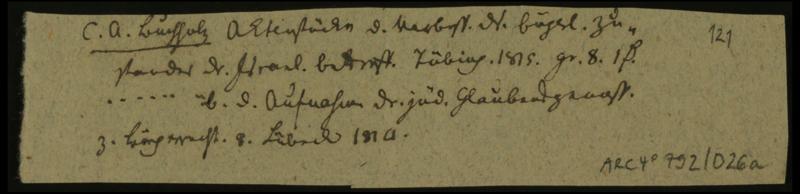 C. A. Buchholz Actenstücke d. Verbess. dr. bürgl. Zu„
standes dr. Israel. betreff. Tübing. 1815. gr. 8. 1 f.
----- üb. d. Aufnahme dr. jüd. Glaubensgenoss.
z. Bürgerrecht. 8. Lübeck 1814.
121
ARC 4° 792/D26a